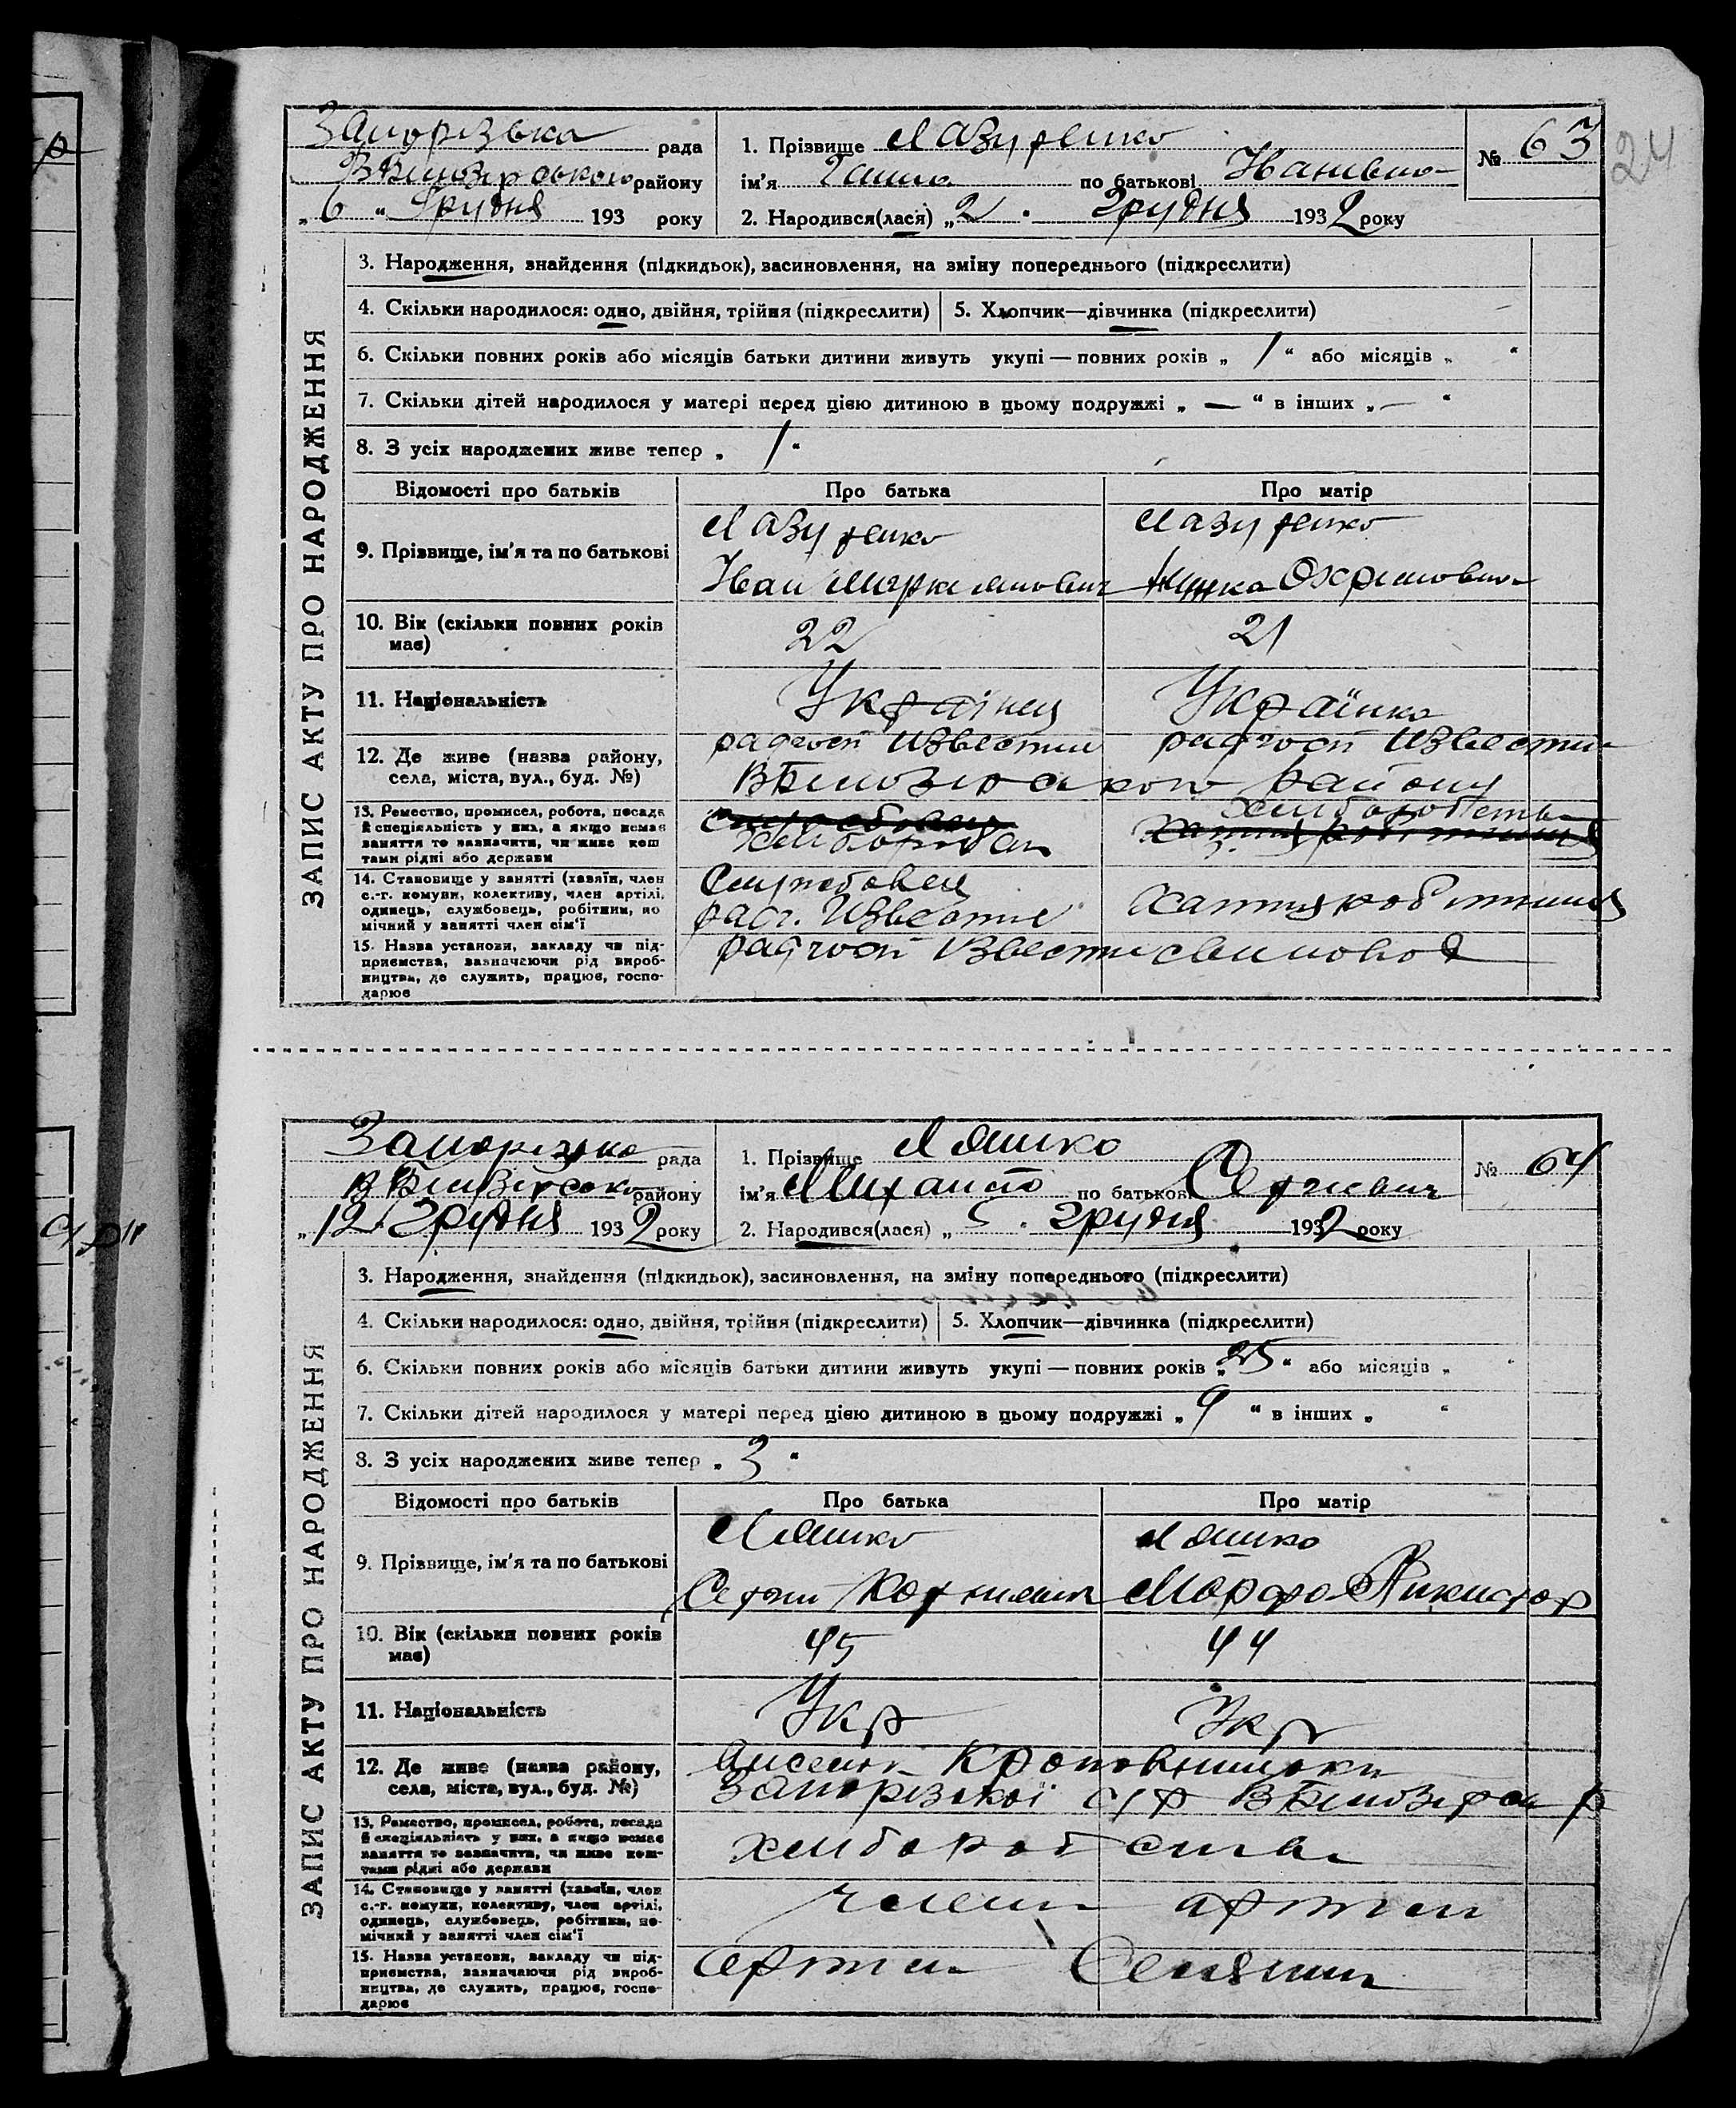 24
Запорізька рада
В Білозерського району
„6“ Грудня 193 року
1. Прізвище Лазуренко
ім'я Ганна по батькові Іванівна
2. Народився(лася) „2“ Грудня 1932 року
№ 63
ЗАПИС АКТУ ПРО НАРОДЖЕННЯ
3. Народження, знайдення (підкидьок), засиновлення, на зміну попереднього (підкреслити)
4. Скільки народилося: одно, двійня, трійня (підкреслити) 5. Хлопчик—дівчинка (підкреслити)
6. Скільки повних років або місяців батьки дитини живуть укупі — повних років „ 1 “ або місяців „ “
7. Скільки дітей народилося у матері перед цією дитиною в цьому подружжі „ — “ в інших „ — “
8. З усіх народжених живе тепер „ 1 “
Відомості про батьків Про батька Про матір
9. Прізвище, ім'я та по батькові
Лазуренко Лазуренко
Іван
10. Вік (скільки повних років має) 22 21
11. Національність Українец Українка
12. Де живе (назва району, села, міста, вул., буд. №)
радгосп Известия радгосп Известия
В Білозерського району
13. Ремество, промисел, робота, посада й спеціяльність у них, а якщо немає заняття то зазначити, чи живе коштами рідні або держави
хлібороб
14. Становище у занятті (хазяїн, член с.-г. комуни, колективу, член артілі, одинець, службовець, робітник, помічний у занятті член сім'ї
Службовец хатня робітниця
радг. Известие
15. Назва установи, закладу чи підприємства, зазначаючи рід виробництва, де служить, працює, господарює
радгосп
Запорізька рада
В Білозерсько району
„12“ Грудня 1932 року
1. Прізвище Ляшко
ім'я Михайло по батькові Сергієвич
2. Народився(лася) „5“ Грудня 1932 року
№ 64
ЗАПИС АКТУ ПРО НАРОДЖЕННЯ
3. Народження, знайдення (підкидьок), засиновлення, на зміну попереднього (підкреслити)
4. Скільки народилося: одно, двійня, трійня (підкреслити) 5. Хлопчик—дівчинка (підкреслити)
6. Скільки повних років або місяців батьки дитини живуть укупі — повних років „25“ або місяців „ “
7. Скільки дітей народилося у матері перед цією дитиною в цьому подружжі „ 9 “ в інших „ “
8. З усіх народжених живе тепер „ 3 “
Відомості про батьків Про батька Про матір
9. Прізвище, ім'я та по батькові
Ляшко Ляшко
Сергій Марфа Никифор
10. Вік (скільки повних років має) 45 44
11. Національність Укр Укр
12. Де живе (назва району, села, міста, вул., буд. №)
Запорізької с/р В Білозерськ р
13. Ремество, промисел, робота, посада й спеціяльність у них, а якщо немає заняття то зазначити, чи живе коштами рідні або держави
14. Становище у занятті (хазяїн, член с.-г. комуни, колективу, член артілі, одинець, службовець, робітник, помічний у занятті член сім'ї
член артіли
15. Назва установи, закладу чи підприємства, зазначаючи рід виробництва, де служить, працює, господарює
Артіль Селянин